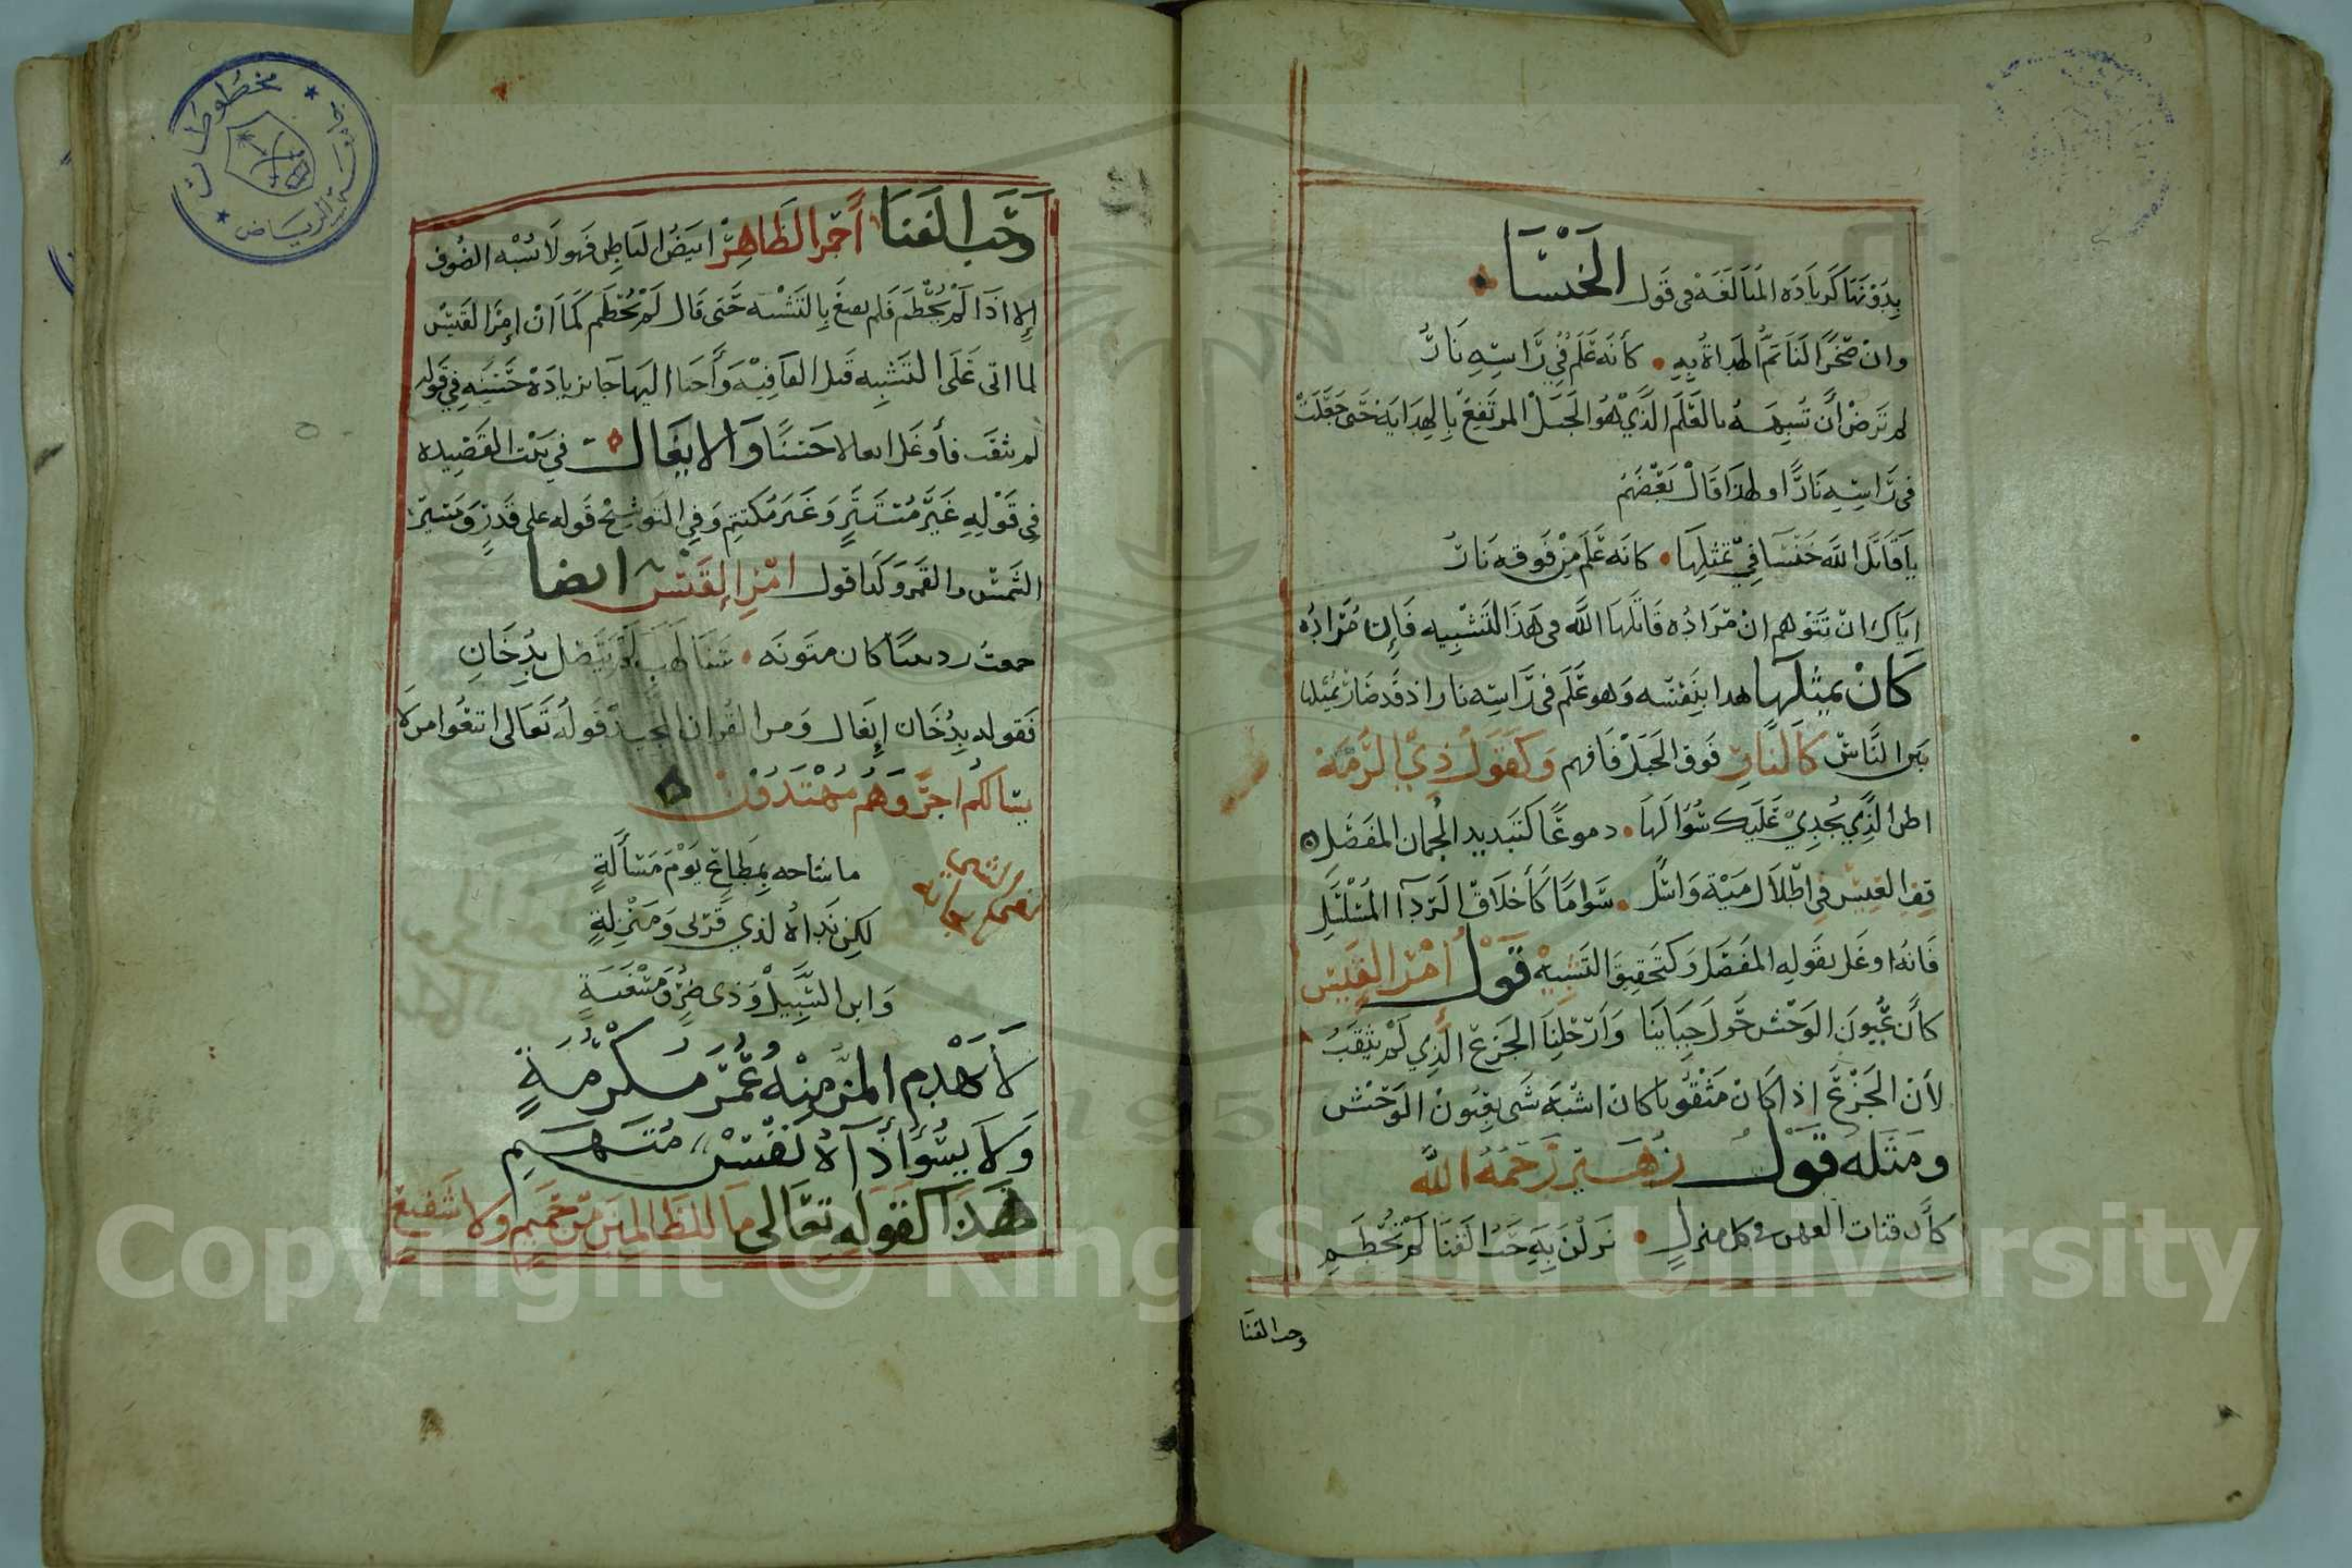 بِدُوْنَهَا كَزيَادَه المُبَالَغَهْ فى قَول الخَنْسَا
وانْ صَخْرًا لَتَاتمُّ الهُدَاةُ بِهِ • كأنه عَلَمٌ فِي رَاسِهِ نَارُ
لم تَرضْ أن تُشَبِهَهُ بالعَلَم الَّذيْ هُوَ الجَبَلْ المرتَفِعْ بِالهِدَايَهْ حَتى جَعَلَتْ
فى رَاسِهِ نَارًا ولهذَا قَالْ بَعْضُهُمْ
يا قَاتَلَ اللَّه خَنْسَا فِيْ تمَثلِهَا • كانه عَلَم مِنْ فَوقه نَارُ
إياك ان تَتَوهم انْ مُرَادُه قَاتَلَهَا اللَّه فى هَذَا التَشْبِيه فَإِن مُرَادُه
كَانْ يمثلها هدا بِنَفْسه وَهو عَلَم فى رَاسِه نار اذ قَد صَارْ يمثلها
بَين النَّاسْ كَالنَارِ فَوق الجَبَلْ فَافهم وَكَقَوْل ذِيْ الرُّمَّهْ
اظن الذِي يُجْدِيْ عَلَيك سُؤَالَهَا • دموعًا كَتَبديد الجُمان المفَصَل
قِفِ العِيسْ فى اطْلاَل مَيَّة وَاسْئَل • سَوامًا كَأَخلاَق الرّدَآ المُسَلْسَل
فَانهُ اوغَل بقَولِه المفَصَل وَكتحَقِيق التَشبِيْه قَوْل أمْرا القَيس
كأَن عُيُونَ الوَحْش حَول خِبَاينَا وَأرْحُلِنَا الجَزعْ الَّذِي لَمْ يثقَبُ
لأَنْ الجَزْعَ اذا كَانْ مَثْقُوبًا كان اشْبَه شَى بِعُيُونْ الوَحْش
ومَثلُه قَوْل زُهَيْر رَحمَهُ اللَّه
كأَن فتات العهن فى كل منزلٍ • نَزلنَ بِهِ حَبُ الفَنَا لَمْ يُحَطَّمِ
وحب الفنا
وَحَب الفَنَا أحْمَر الظَاهِرْ ابيَضُ البَاطِن فَهو لاَ يُشْبه الصُوف
إلا اذَا لَمْ يُحَطَّمْ فَلم بِالتَشْبه حَتى قَال لَمْ يُحَطَّمِ كَمَا انْ امْرَا القَيْسْ
لما اتى عَلَى التَشبِه قَبل القَافِيَهْ وَأحتاا اليهَا جَا بزيادَهْ حَسَنَه فِي قَوله
لم يثقب فأوغَل ايغالا حَسَنًا وَالايغَال فى بَيْت القَصِيده
فى قَوْلِه غَيَر مُسْتَتَرٍ وَغَير مُكتتِم وَفِى التَوشِيح قَوله على قَدرٍ وَمَسِير
الشَمْسْ والقَمَر وَكَذا قول امْرِء القَيسْ ايضا
جمعتُ ردينيًا كان متونَه • سَنَا لَهَبٍ لَمْ يَتَصِل بِدُخَانِ
فَقوله بِدُخَان إيغَال وَمن القُران المجِيدْ قَولُه تَعَالى اتبِعُوا من لا
يسالكُم اجرًا وَهُم مُهْتَدُوْن
ما شاحه يَوْمَ مَسْأَلَةٍ
لكِن نَدَاهُ لذي قُرْبى وَمَنْزِلةٍ
وَابن السَّبِيلْ وَذى ضُرٍ وَمَسْغَبَةٍ
لاَ يَهْدِم المَنُّ مِنْهُ عُمْرَ مكْرُمَةٍ
وَلاَ يَسُؤُ أذَآهُ نَفْسْ مُتَّهَمِ
هَذَا كَقَولِه تَعَالى مَا للظَالِمينَ مِنْ حَمِيم وَلا شَفِيْع
مخطوطات
جامعة الرياض
1957
Copyright © King Saud University